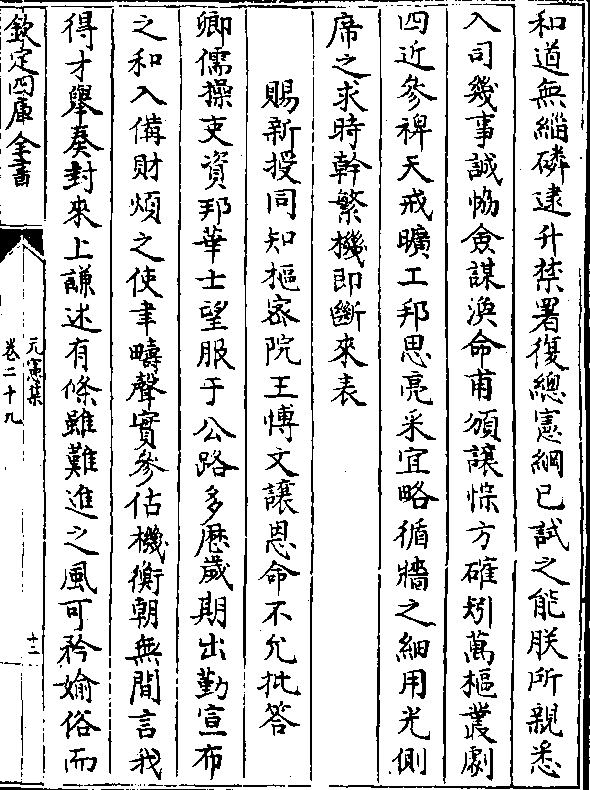 和道無緇磷逮升禁署復總憲綱已試之能朕所親悉
入司幾事誠恊僉謀渙命甫頒讓悰方確矧萬樞叢劇
四近參裨天戒曠工邦思亮采宜略循牆之細用光側
席之求時幹繁機即斷來表
賜新授同知樞密院王博文讓恩命不允批答
卿儒操吏資邦華士望服于公路多歴歲期出勤宣布
之和入備財煩之使聿疇聲實參佑機衡朝無間言我
得才舉奏封來上謙述有條雖難進之風可矜媮俗而
欽定四庫全書
元憲集
卷二十九
十二